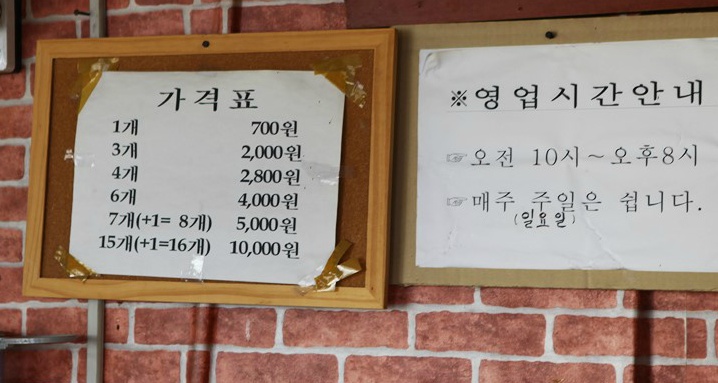 가격표
1개 700원
3개 2,000원
4개 2,800원
6개 4,000원
7개(+1= 8개) 5,000원
15개(+1=16개) 10,000원
※영업시간안내
☞오전 10시~오후8시
☞매주 주일은 쉽니다.
(일요일)